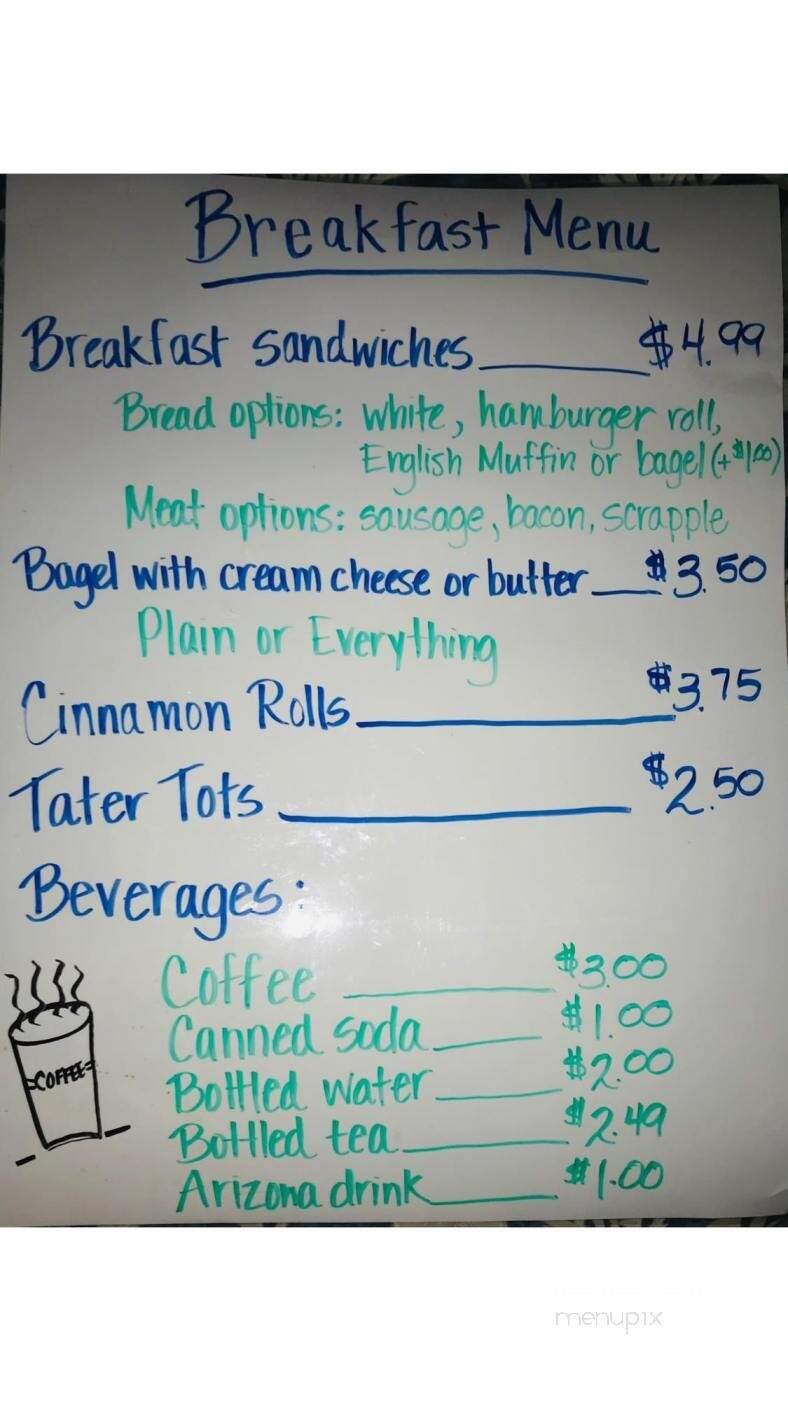 Breakfast Menu
Breakfast sandwiches $4.99
Bread options: white, hamburger roll,
English Muffin or bagel (+$1.00)
Meat options: sausage, bacon, scrapple
Bagel with cream cheese or butter $3.50
Plain or Everything
Cinnamon Rolls $3.75
Tater Tots $2.50
Beverages:
Coffee $3.00
Canned soda $1.00
=COFFEE=
Bottled water $2.00
Bottled tea $2.49
Arizona drink $1.00
menupix